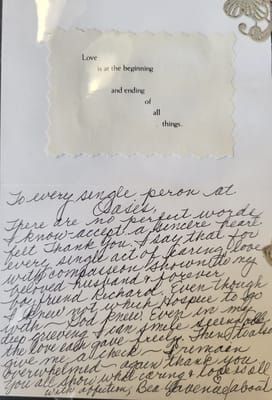 Love
is at the beginning
and ending
of
all
things.
To every single peron at
Oasis,
There are no perfect words
I know - accept a sincere heart
felt Thank you. I say that for
every single act of caring, love
with compassion shown to my
beloved husband & forever
boyfriend Richard. Even though
I knew not what Hospice to go
with - God knew! Even in my
deep grieving I can smile seeing all
the love each gave freely. Thanks to all
give me a check - I remain
overwhelmed - again thank you
You all show what caring & love is all
with affection, Bea about